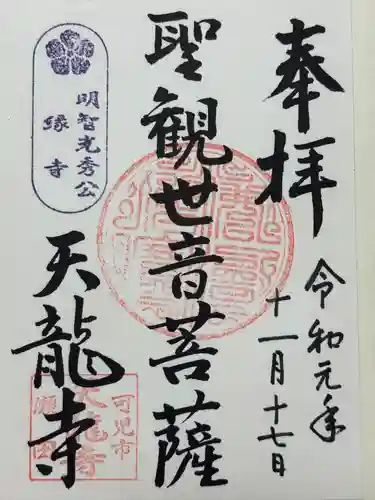 奉拝
令和元年
十一月十七日
聖観世音菩薩
明智光秀公
縁寺
天龍寺
可児市
天龍寺